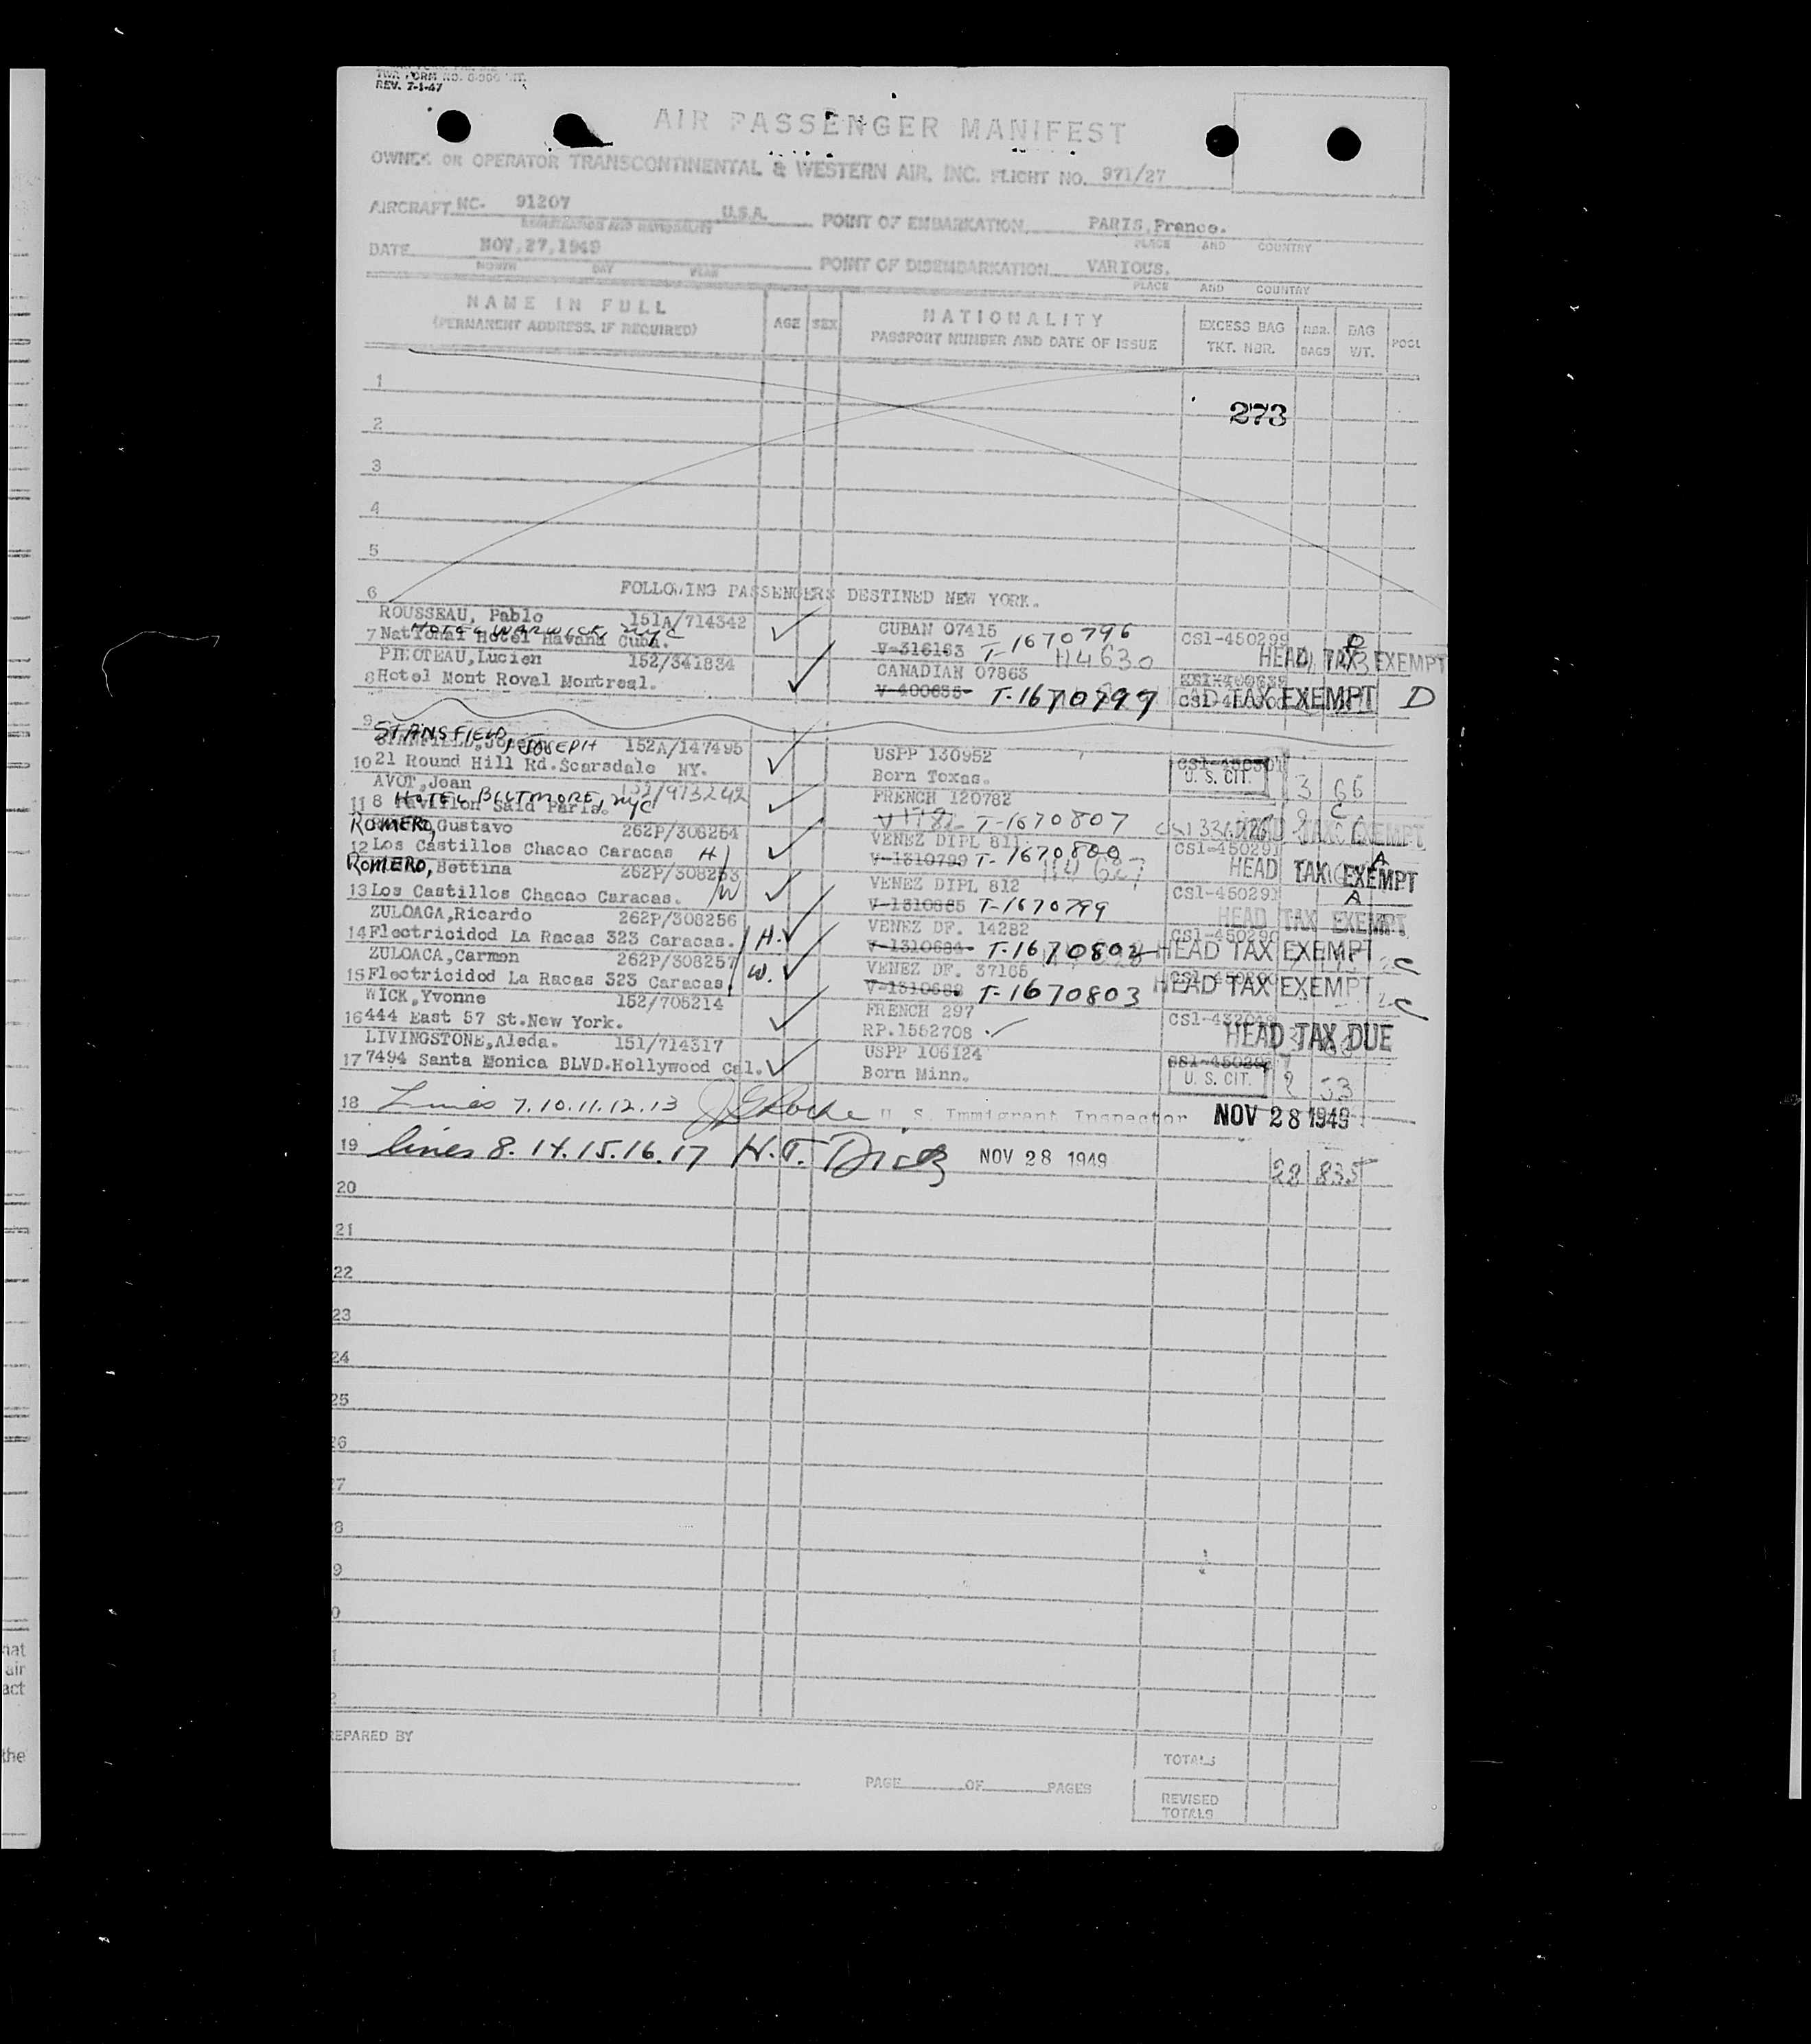 TWA FORM NO.
REV. 7-1-47
AIR PASSENGER MANIFEST
OWNER OR OPERATOR TRANSCONTINENTAL & WESTERN AIR, INC. FLIGHT NO. 971/27
AIRCRAFT NC- 91207 U.S.A. POINT OF EMBARKATION PARIS,France.
REGISTRATION AND NATIONALITY PLACE AND COUNTRY
DATE NOV,27,1949 POINT OF DISEMBARKATION VARIOUS.
MONTH DAY YEAR PLACE AND COUNTRY
NAME IN FULL AGE SEX NATIONALITY EXCESS BAG NBR. BAG
(PERMANENT ADDRESS, IF REQUIRED) PASSPORT NUMBER AND DATE OF ISSUE TKT. NBR. BAGS WT.
1
273
2
3
4
5
6 FOLLOWING PASSENGERS DESTINED NEW YORK.
ROUSSEAU, Pablo 151A/714342 CUBAN 07415
HOTEL WARWICK, NYC
7 National Hotel Havana Cuba. V-316163 T-1670796 114630 CS1-450299 HEAD TAX EXEMPT
Lucien 152/341834 CANADIAN 07863
8 Hotel Mont Royal Montreal. V-400635- T-1670797 HEAD TAX EXEMPT D
9
STANSFIELD, JOSEPH 152A/147495 USPP 130952 CS1-450301
10 21 Round Hill Rd.Scarsdale NY. Born Texas. U. S. CIT. 3 66
AVOT,Jean FRENCH 120782
HOTEL BILTMORE, NYC
11 8 Pavillon Said Paris. T-1670807 HEAD TAX EXEMPT
ROMERO, Gustavo 262P/308254 VENEZ DIPL 811
12 Los Castillos Chacao Caracas H V-1310799 T-1670800 CS1-450291 HEAD TAX EXEMPT A
ROMERO, Bettina 262P/308253 VENEZ DIPL 812
13 Los Castillos Chacao Caracas. W V-1310685 T-1670799 CS1-450291 HEAD TAX EXEMPT A
ZULOAGA,Ricardo 262P/308256 VENEZ DF. 14282
14 Electricidod La Racas 323 Caracas. H. V-1310684- T-1670802 CS1-450290 HEAD TAX EXEMPT C
ZULOACA,Carmen 262P/308257 VENEZ DF. 37165
15 Electricidod La Racas 323 Caracas. W. T-1670803 HEAD TAX EXEMPT C
WICK,Yvonne 152/705214 FRENCH 297
16 444 East 57 St.New York. RP.1552708 HEAD TAX DUE
LIVINGSTONE,Aleda. 151/714317 USPP 106124
17 7494 Santa Monica BLVD.Hollywood Cal. Born Minn. U. S. CIT. 2 53
18 Lines 7.10.11.12.13 U. S. Immigrant Inspector NOV 28 1949
19 lines 8.14.15.16.17 H.T. NOV 28 1949
20
21
22
23
24
25
26
27
28
29
EPARED BY
TOTALS
PAGE OF PAGES
REVISED
TOTALS
nat
air
act
the